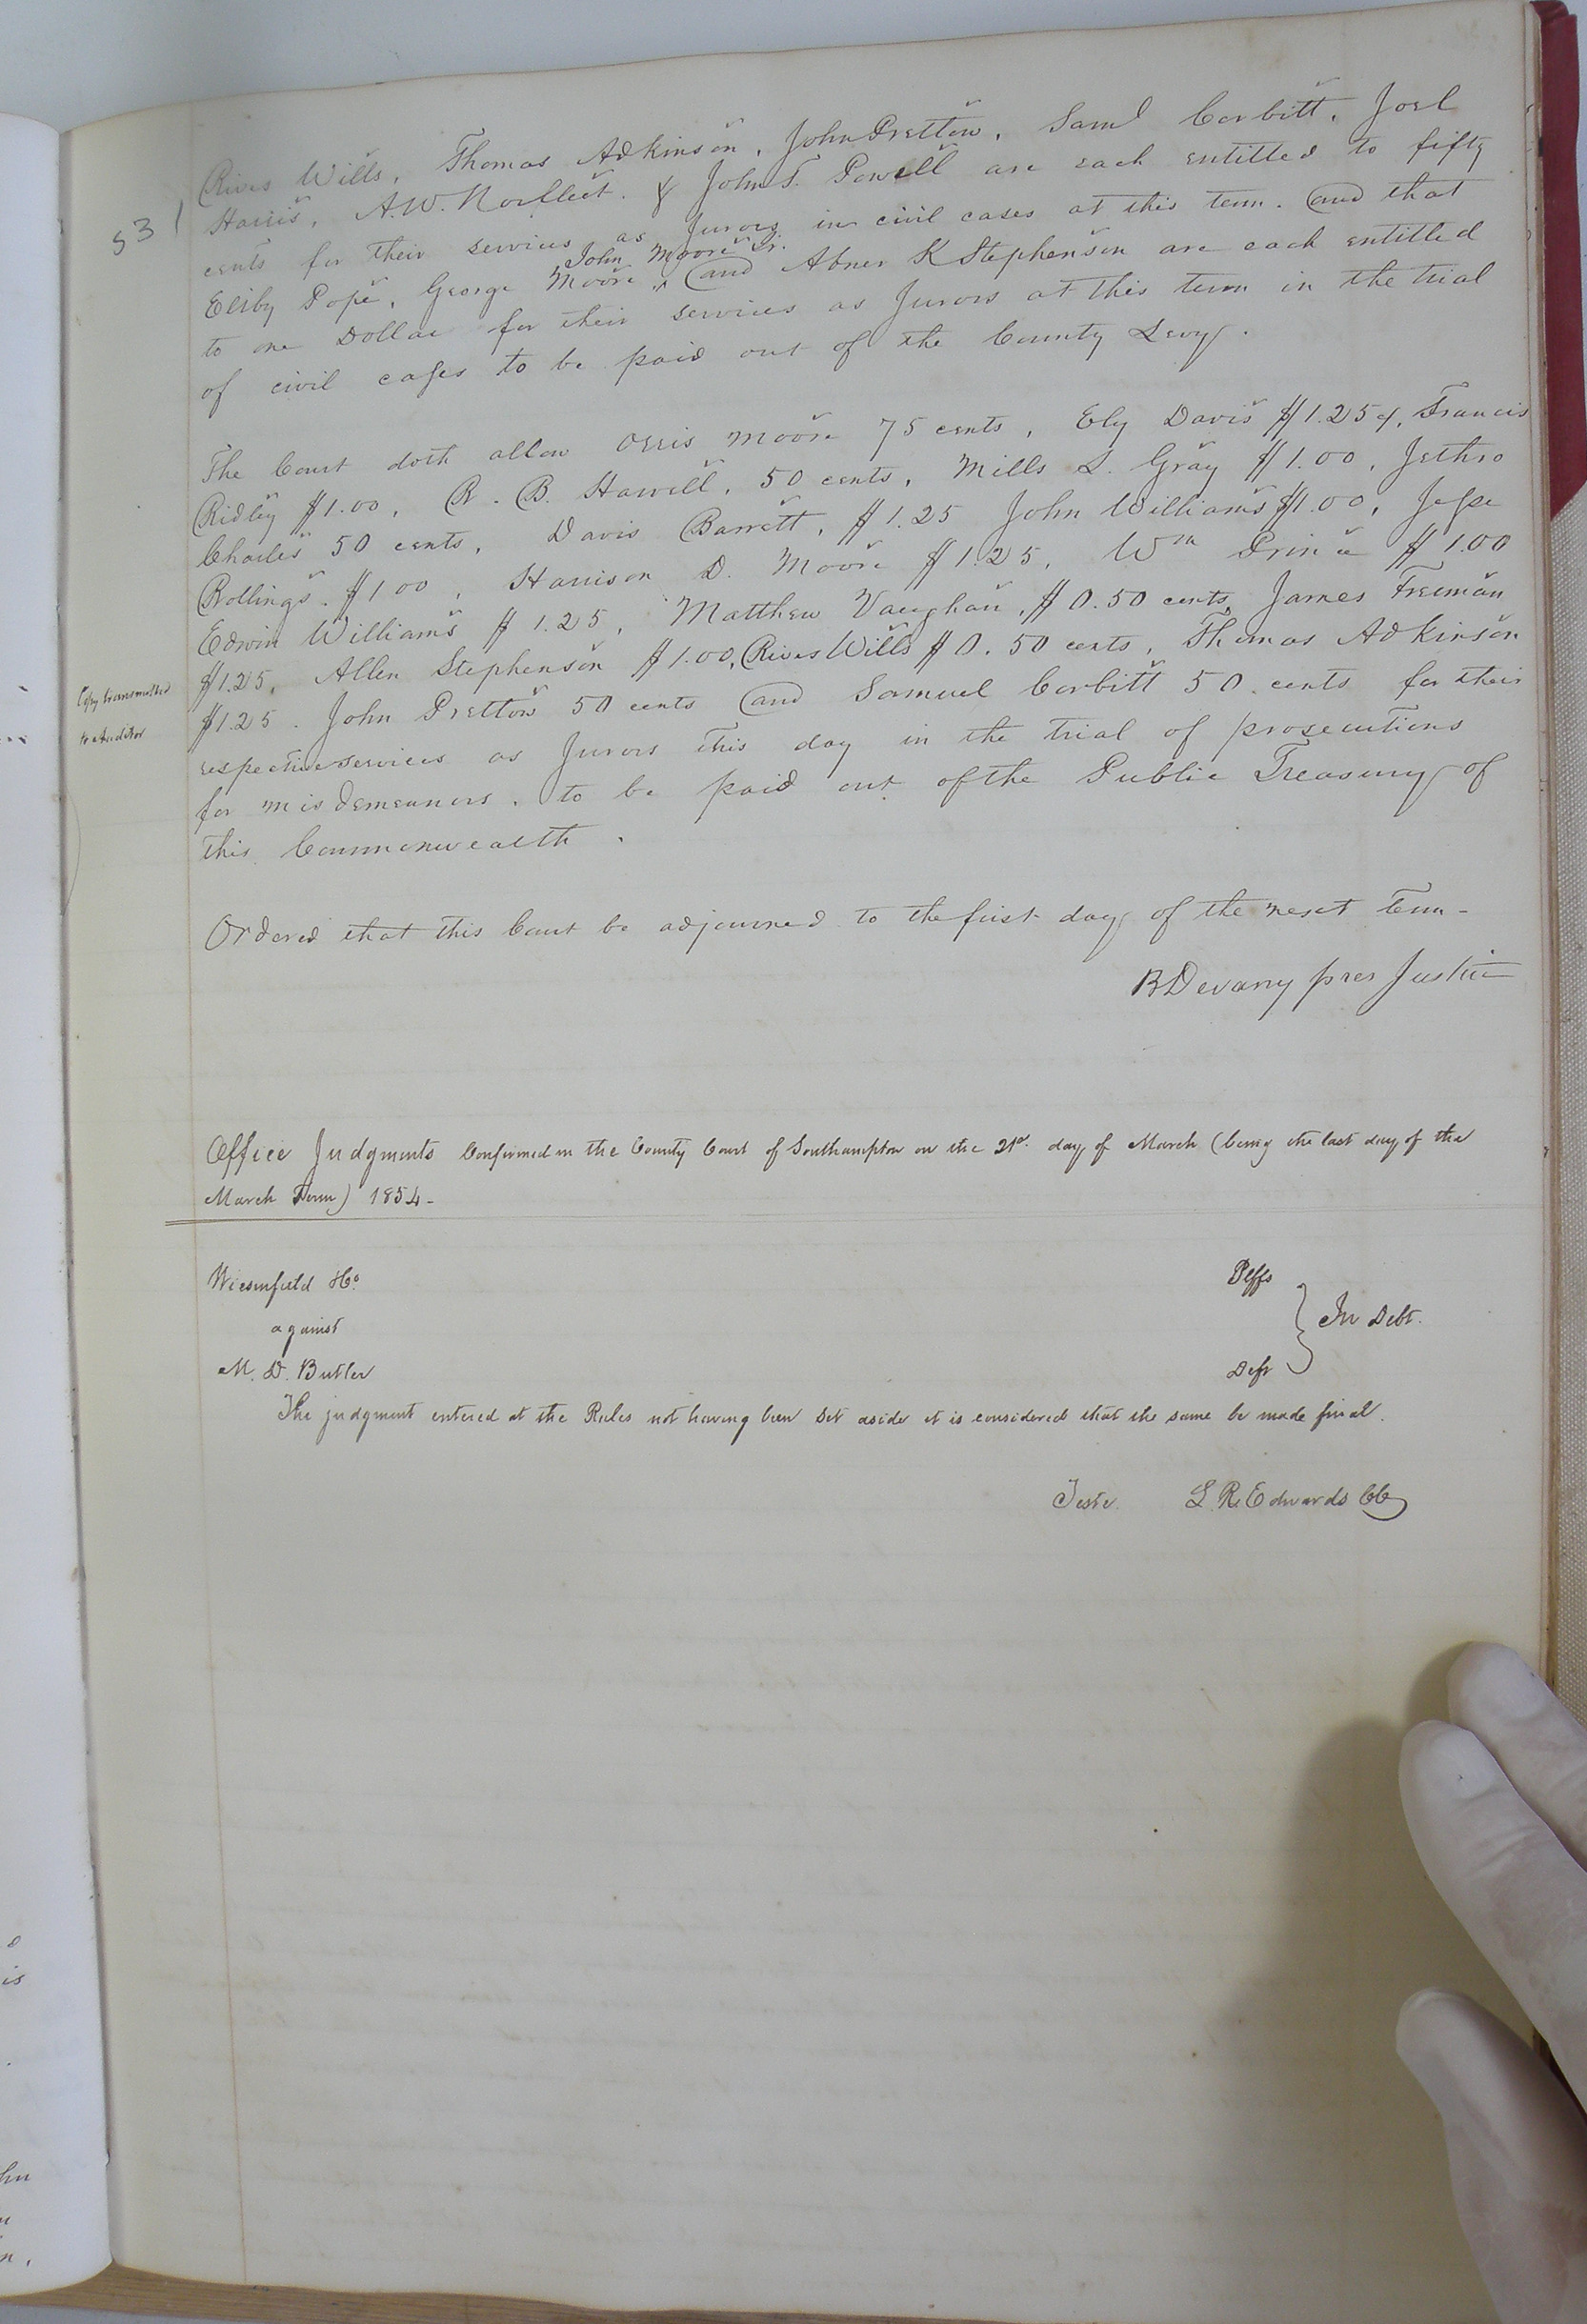 531
Rives Wills, Thomas Adkinson, John Pretlow, Saml Corbitt, Joel
Harris, A.W. Norfleet. & John T. Powell are each entitled to fifty
cents for their services as Jurors in civil cases at this term. and that
John Moore Sr.
Elsby Pope, George Moore, ^ and Abner K Stephenson are each entitled
to one Dollar for their services as Jurors at this term in the trial
of civil cases to be paid out of the County Levy.
The Court doth allow Orris Moore 75 cents, Ely Davis $1.25, Francis
Ridley $1.00, R. B. Harrell, 50 cents, Mills L. Gray $1.00, Jethro
Charles 50 cents, Davis Barrett, $1.25 John Williams $1.00, Jesse
Rollings. $1 00, Harrison D. Moore $1.25, Wm Prince $1.00
Edwin Williams $1.25, Matthew Vaughan, $0.50 cents, James Freeman
$1.25, Allen Stephenson $1.00, Rives Wills $0.50 cents, Thomas Adkinson
Copy transmitted
to Auditor
$1.25. John Pretlow 50 cents and Samuel Corbitt 50 cents for their
respective services as Jurors this day in the trial of prosecutions
for misdemeanors. to be paid out of the Public Treasury of
this Commonwealth.
Ordered that this Court be adjourned to the first day of the next term-
B Devany pres Justice
Office Judgments Confirmed in the County Court of Southampton on the 21st day of March (being the last day of the
March Term) 1854-
Wiesenfield & Co. Plffs
against In Debt.
M. D. Butler Deft
The judgment entered at the Rules not having been set aside it is considered that the same be made final.
Teste. L. R. Edwards CC